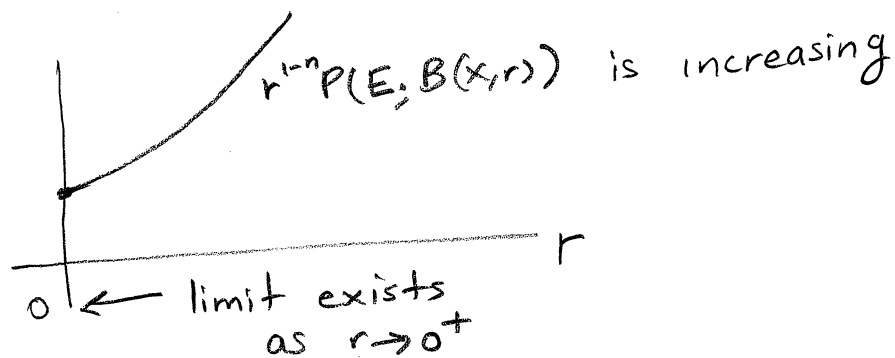 r^{1-n} P(E; B(x,r)) is increasing
r
0 ← limit exists
as r→0⁺